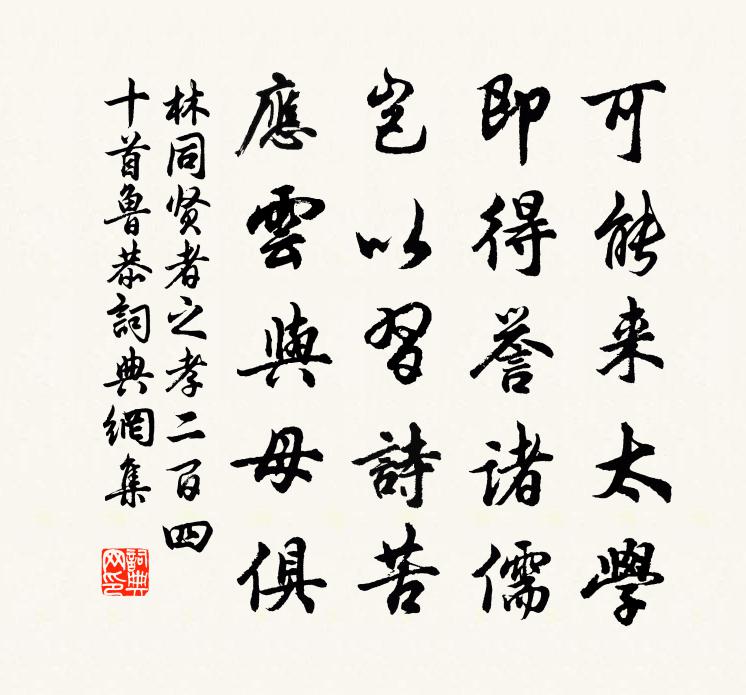 可能来太學
即得譽諸儒
岂以習詩苦
應雲與母俱
林同贤者之孝二百四
十首魯恭詞典網集
詞典
网印